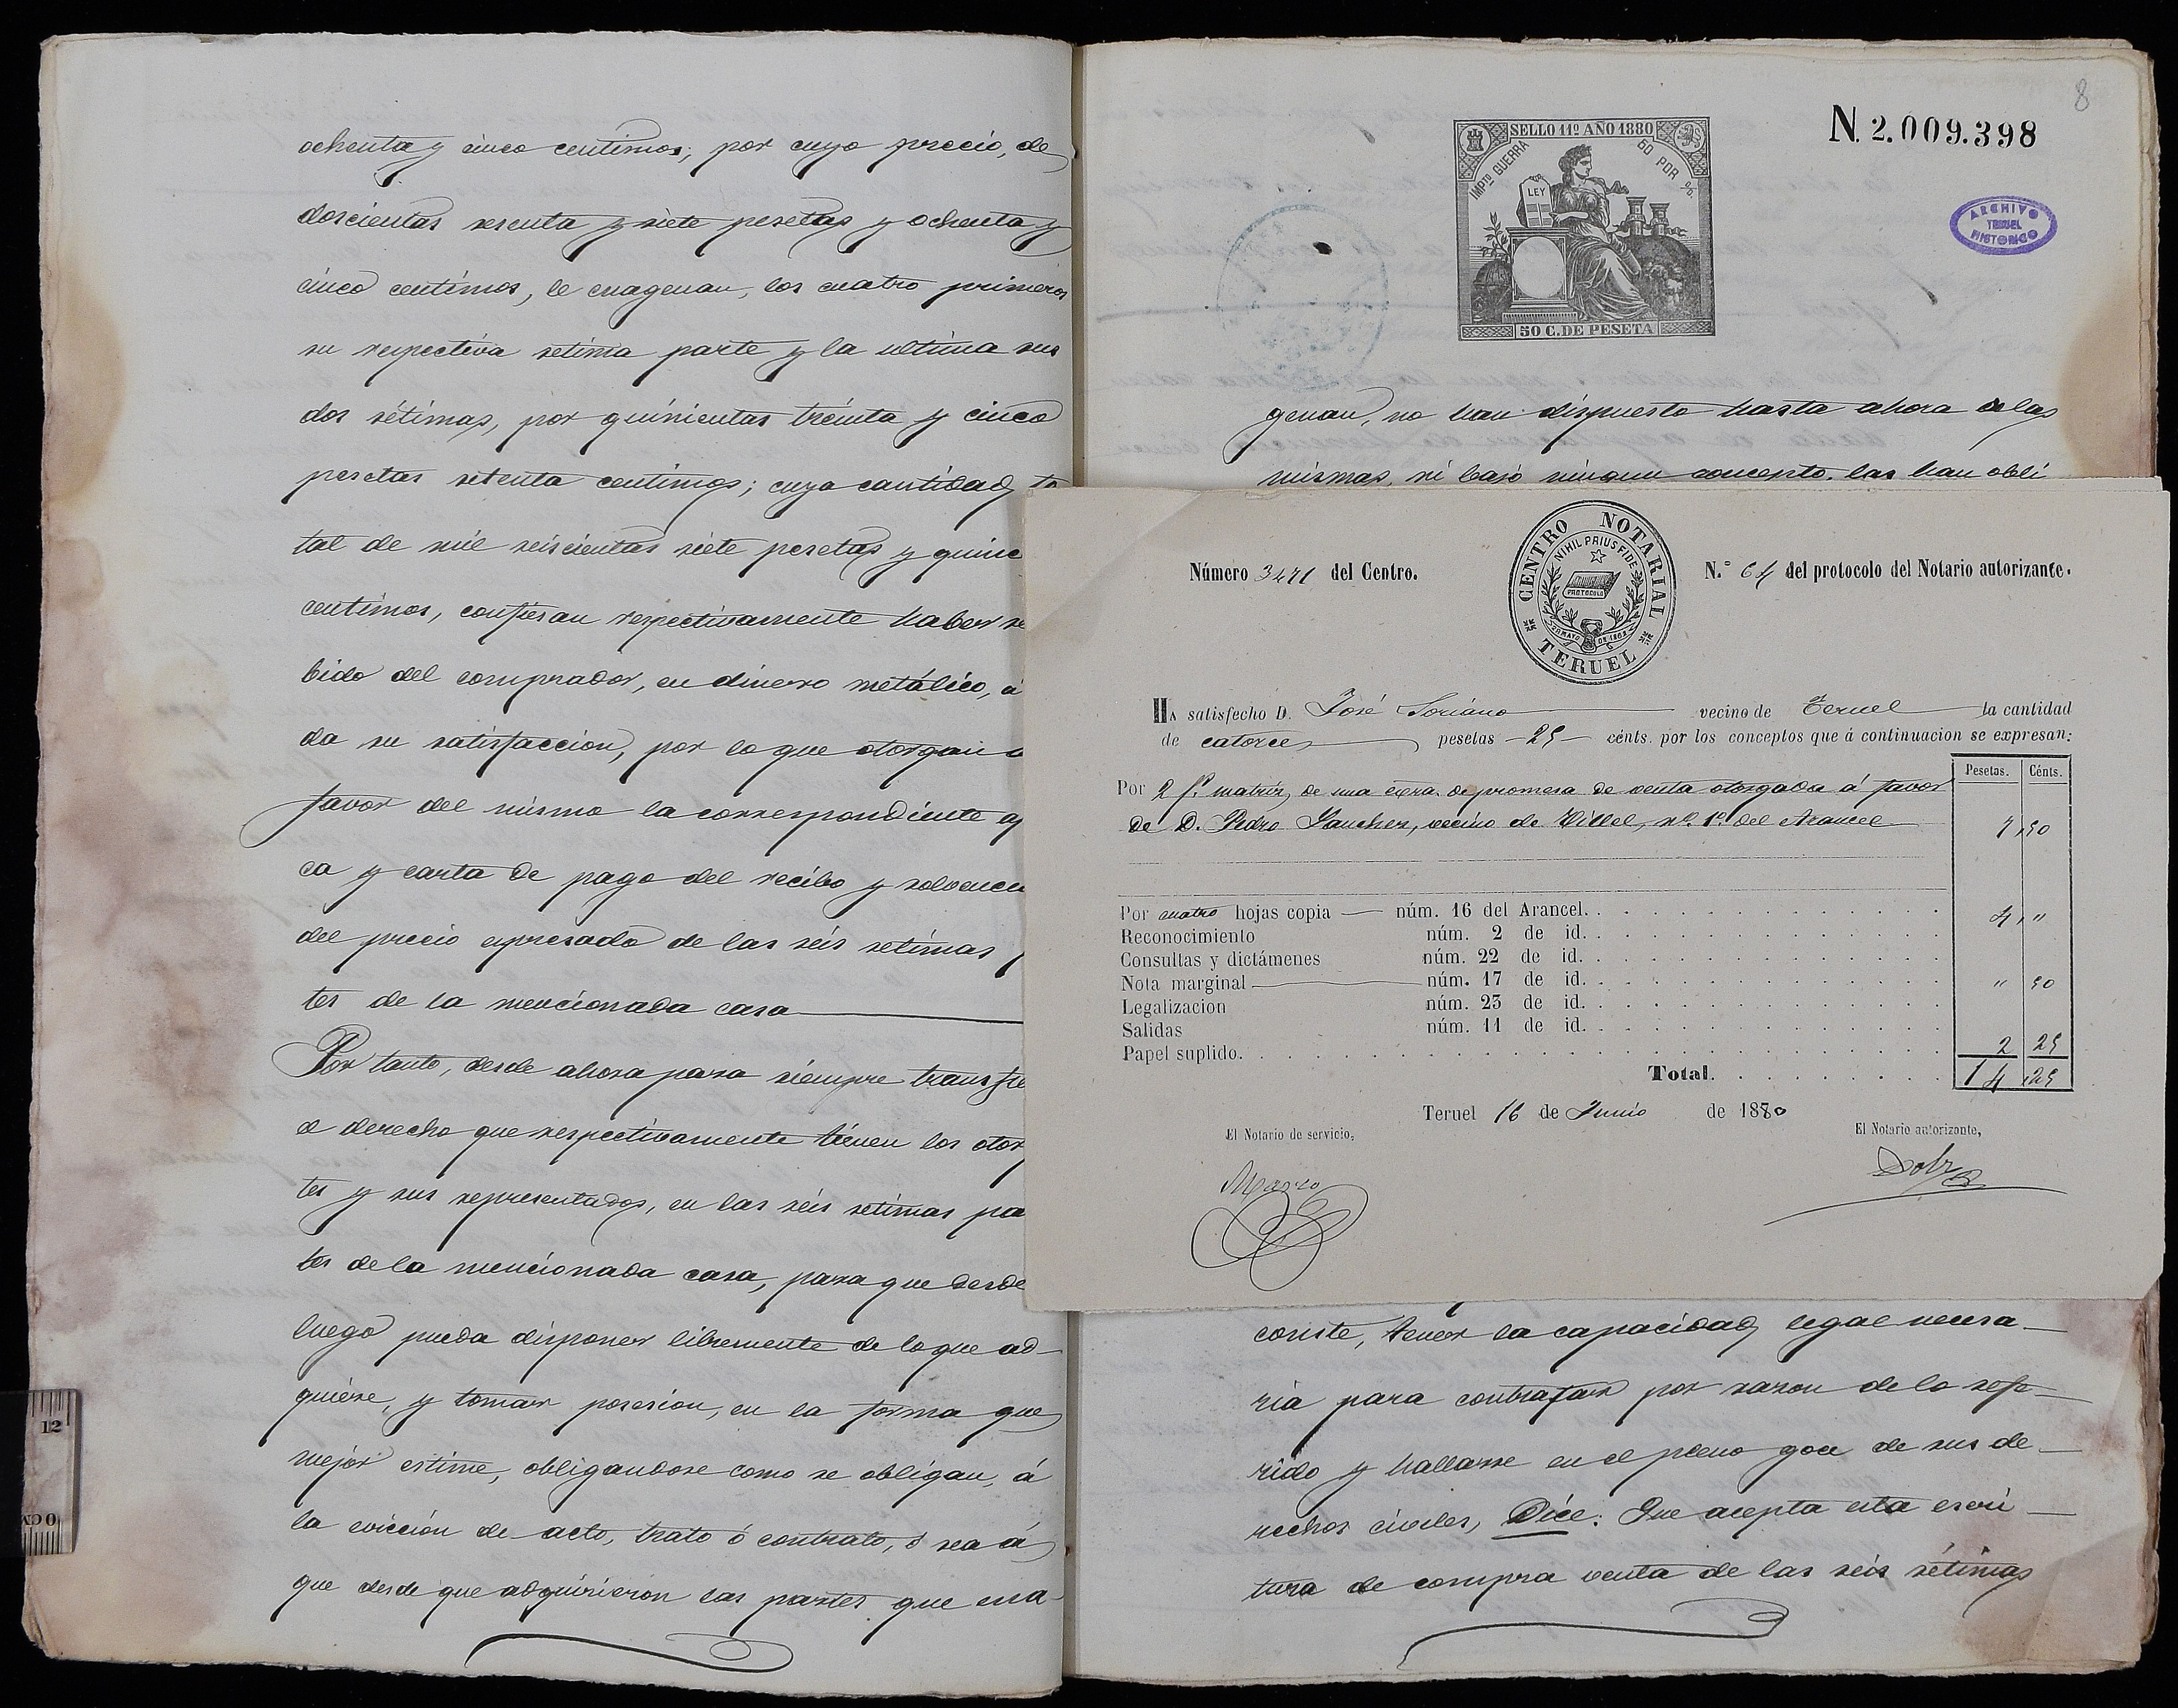 ochenta y cinco centimos; por cuyo precio, de
doscientas sesenta y siete pesetas y ochenta y
cinco centimos, le enagenan, los cuatro primeros
su respectiva setima parte y la ultima sus
dos sétimas, por quinientas treinta y cinco
pesetas setenta centimos; cuya cantidad to
tal de mil seiscientas siete pesetas y quince
centimos, confiesan respectivamente haber re
bido del comprador, en dinero metálico, á
da su satisfaccion, por lo que otorgan a
favor del mismo la correspondiente
ca y carta de pago del recibo y solvencia
del precio espresado de las séis setimas p
tes de la mencionada casa
Por tanto, desde ahora para siempre transfie
el derecho que respectivamente tienen los otor
tes y sus representados, en las séis setimas pa
tes de la mencionada casa, para que desde
luego pueda disponer libremente de lo que ad-
quiere, y tomar posesion, en la forma que
mejor estime, obligandose como se obligan, á
la eviccion de acto, trato ó contrato, ó sea á
que desde que adquirieron las partes que ena-
8
N. 2.009.398
SELLO 11º AÑO 1880
IMPTO GUERRA 50 POR %
LEY
50 C. DE PESETA
ARCHIVO
TERUEL
HISTORICO
genan, no han dispuesto hasta ahora de las
mismas, ni bajo ningun concepto, las han obli
CENTRO NOTARIAL
NIHIL PRIUS FIDE
PROTOCOLO
TERUEL
Número 3471 del Centro.
N.º 64 del protocolo del Notario autorizante.
HA satisfecho D. José Soriano vecino de Teruel la cantidad
de catorce pesetas 25 cénts. por los conceptos que á continuacion se expresan:
Pesetas. Cénts.
Por 2 fs. matriz, de una escra. de promesa de venta otorgada á favor
de D. Pedro Sanchez, vecino de Villel, nº. 1º. del Arancel 7,50
Por cuatro hojas copia núm. 16 del Arancel. 4,"
Reconocimiento núm. 2 de id.
Consultas y dictámenes núm. 22 de id.
Nota marginal núm. 17 de id. " 50
Legalizacion núm. 23 de id.
Salidas núm. 11 de id.
Papel suplido. 2 25
Total. 14,25
Teruel 16 de Junio de 1880
El Notario de servicio,
El Notario autorizante,
conste, tener la capacidad legal necesa-
ria para contratar por razon de lo refe-
rido y hallarse en el pleno goce de sus de-
rechos civiles, Dice: Que acepta esta escri-
tura de compra venta de las séis sétimas
12